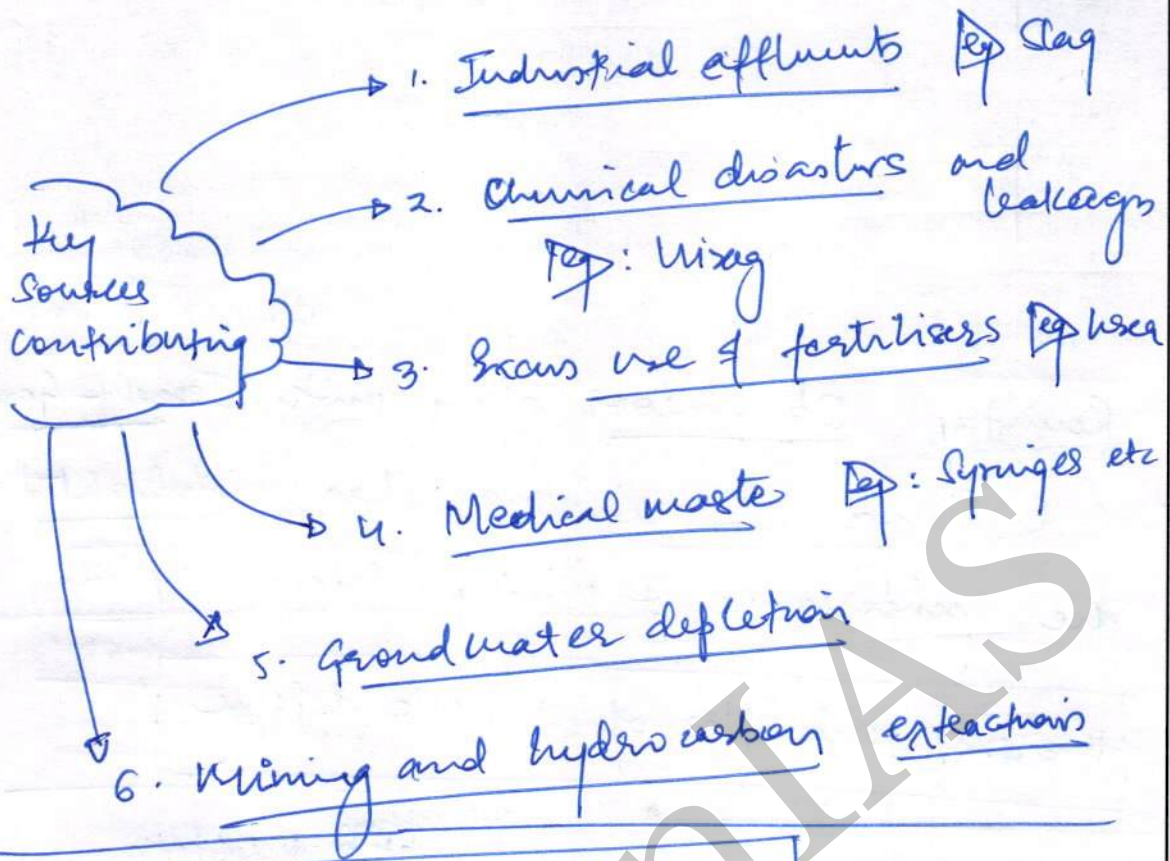 Key
Sources
contributing
1. Industrial effluents eg Slag
2. Chemical disasters and
leakages
eg: Vizag
3. Excess use of fertilisers eg Urea
4. Medical waste eg: Syringes etc
5. Groundwater depletion
6. Mining and hydrocarbon extractions
nIAS